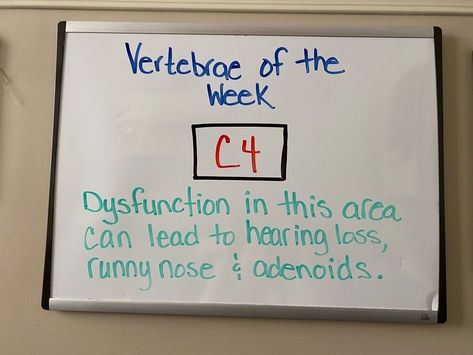 Vertebrae of the
Week
C4
Dysfunction in this area
can lead to hearing loss,
runny nose & adenoids.